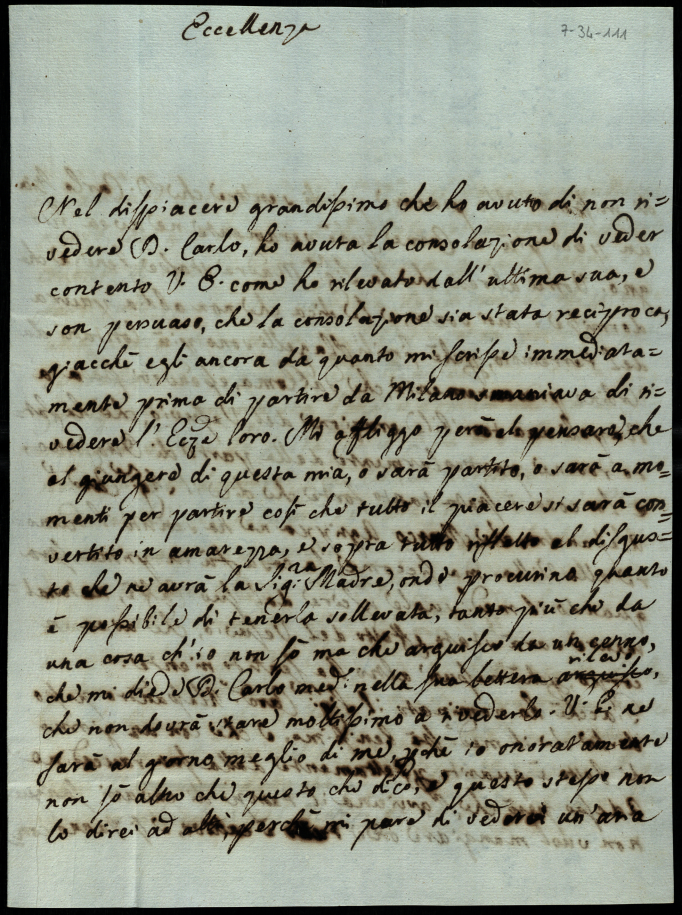 Eccellenza
7-34-111
Nel dispiacere grandissimo che ho avuto di non ri=
vedere D. Carlo, ho avuta la consolazione di veder
contento V. E. come ho rilevato dall' ultima sua, e
son persuaso, che la consolazione sia stata reciproca,
giacchè egli ancora da quanto mi scrisse immediata=
mente prima di partire da Milano smaniava di ri=
vedere l' Ecc.ze loro. Mi affliggo però al pensare, che
al giungere di questa mia, o sarà partito, o sarà a mo=
menti per partire così che tutto il piacere si sarà con=
vertito in amarezza, e sopra tutto rifletto al disgus=
to che ne avrà la Sig.ra Madre, onde procurino quanto
è possibile di tenerla sollevata, tanto più che da
una cosa ch' io non sò ma che arguisco da un cenno,
che mi diede D. Carlo med. nella sua lettera arguisco,
che non dovrà stare moltissimo a rivederlo. V. E. ne
sarà al giorno meglio di me, pchè io onoratamente
non sò altro che questo che dico, e questo stesso non
lo direi ad altri, perchè mi pare di vederci un' aria